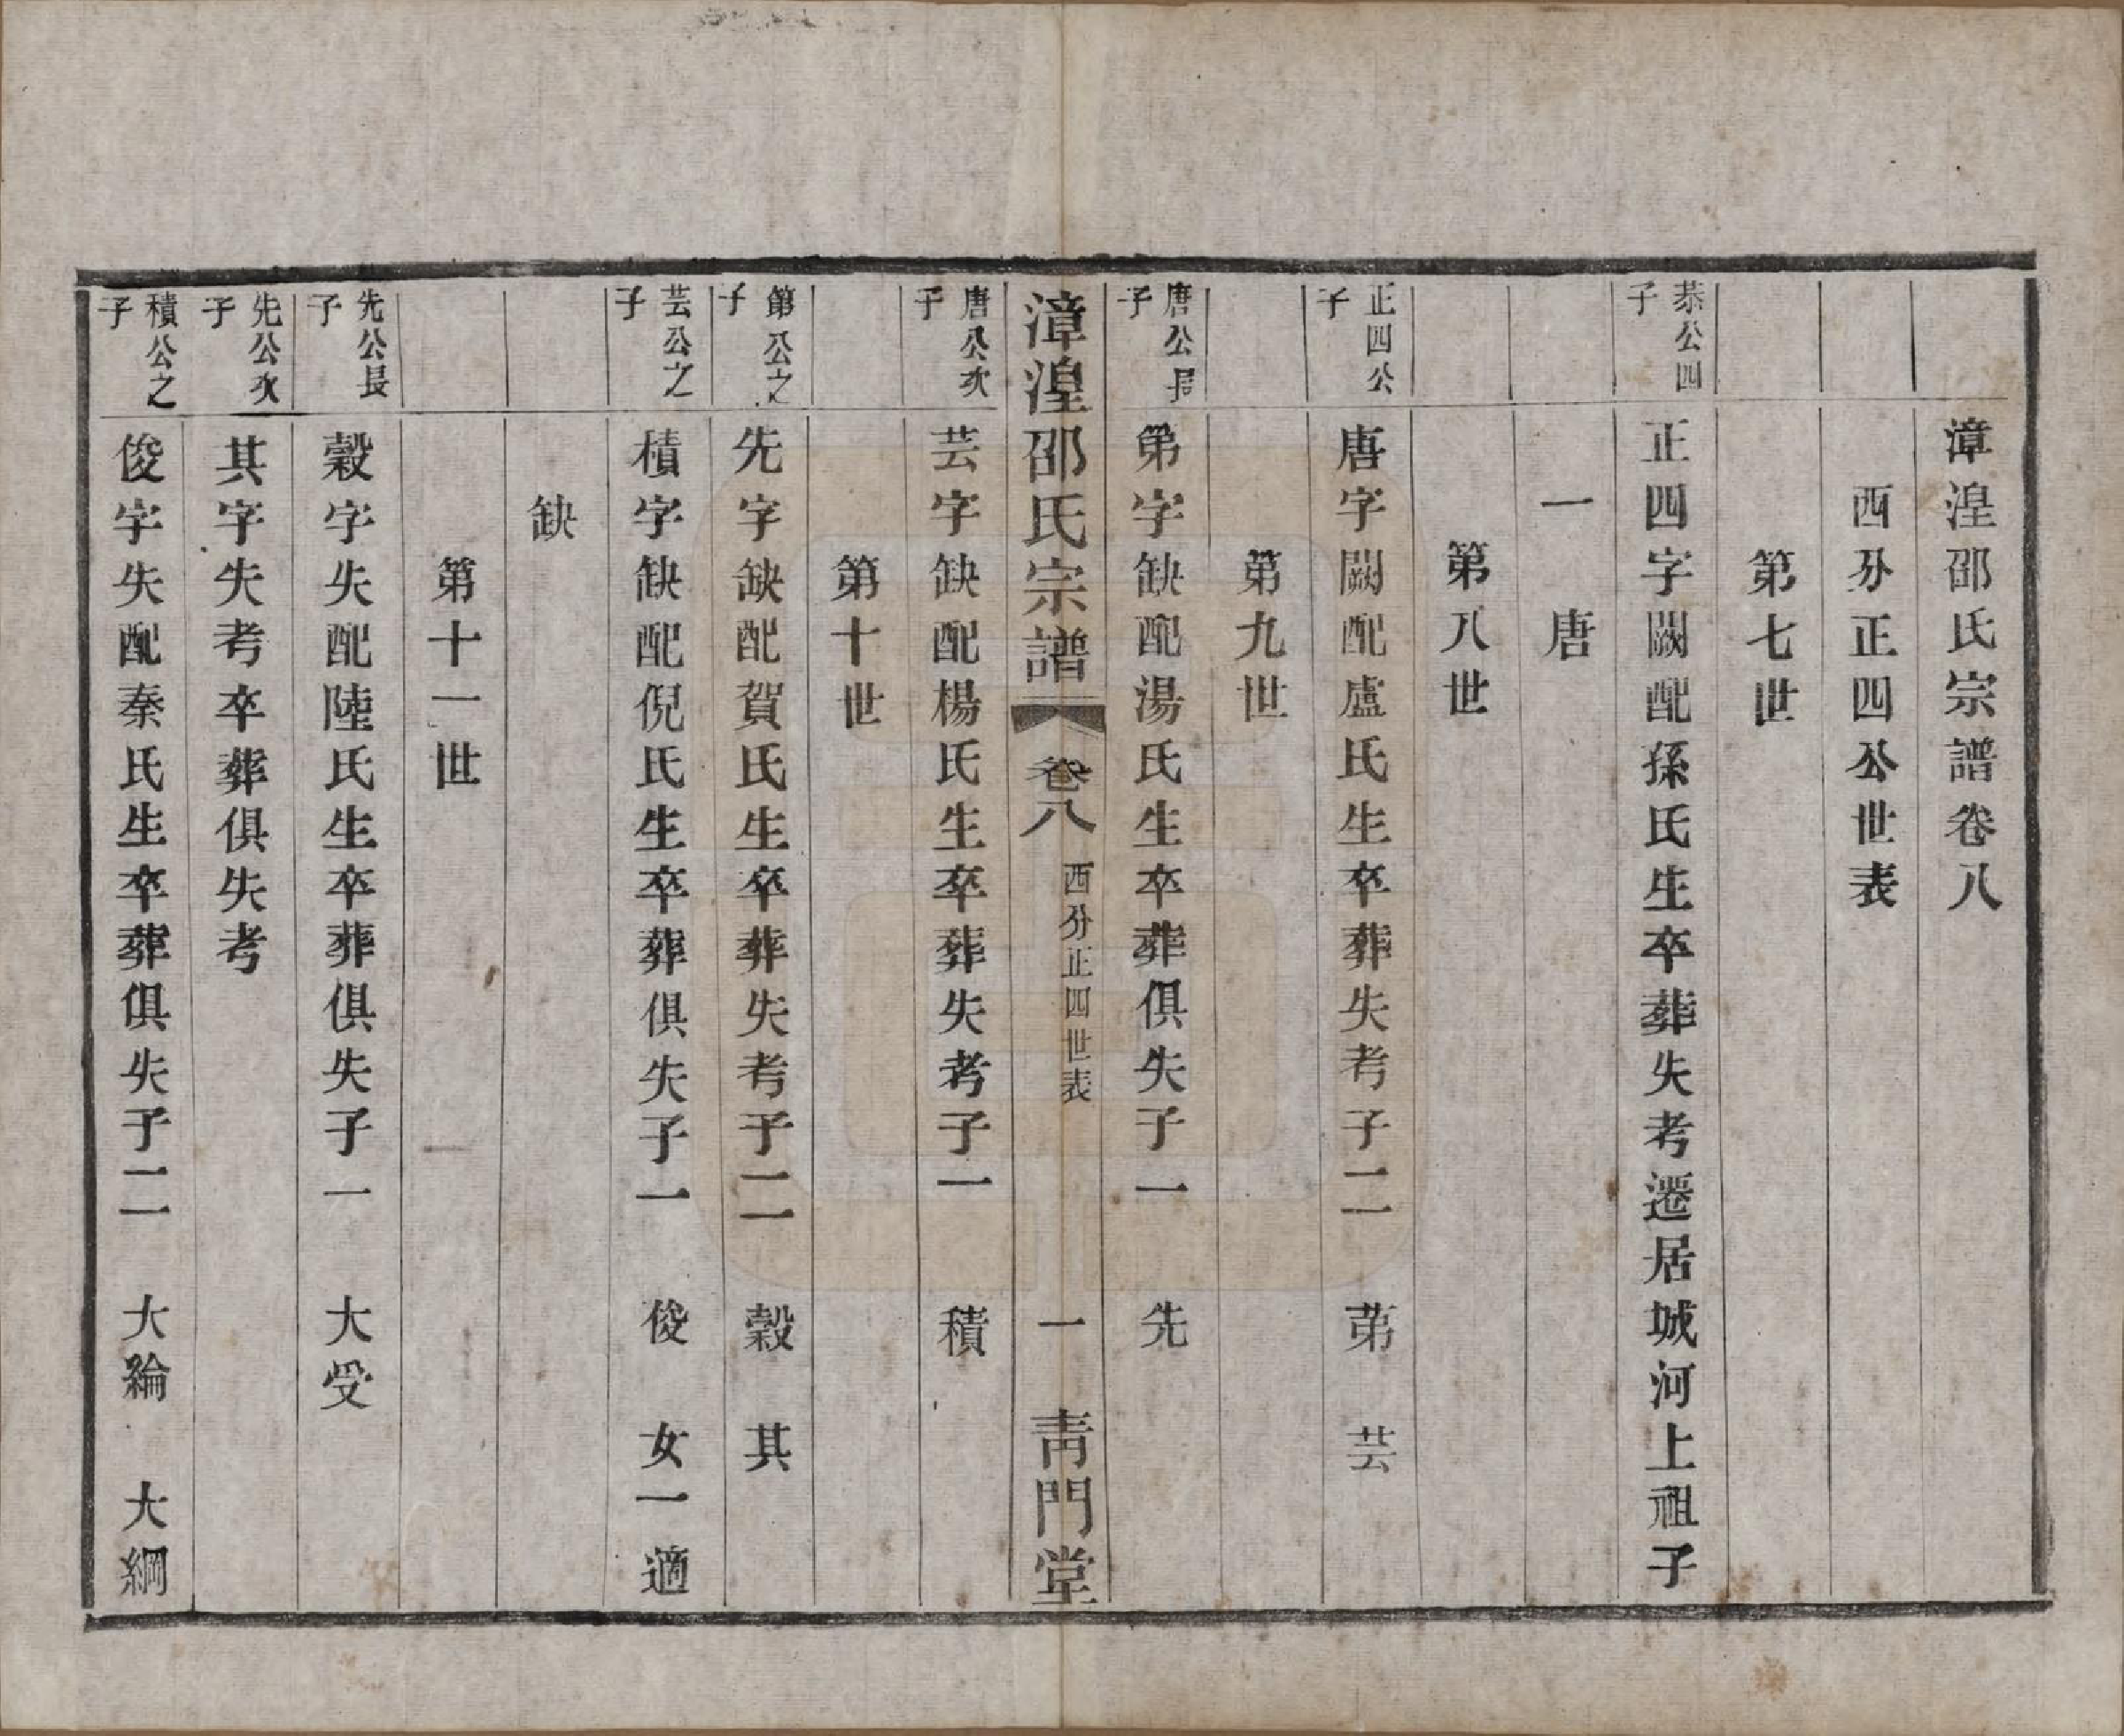 漳湟邵氏宗譜卷八
西分正四公世表
第七世
恭公四子
正四字闕配孫氏生卒葬失考遷居城河上祖子
一 唐
第八世
正四公子
唐字闕配盧氏生卒葬失考子二 苐 芸
第九世
唐公長子
苐字缺配湯氏生卒葬俱失子一 先
漳湟邵氏宗譜 卷八 西分正四世表 一 靑門堂
唐公次子
芸字缺配楊氏生卒葬失考子一 積
第十世
第公之子
先字缺配賀氏生卒葬失考子二 穀 其
芸公之子
積字缺配倪氏生卒葬俱失子一 俊 女一適
缺
第十一世
先公長子
穀字失配陸氏生卒葬俱失子一 大受
先公次子
其字失考卒葬俱失考
積公之子
俊字失配秦氏生卒葬俱失子二 大綸 大綱